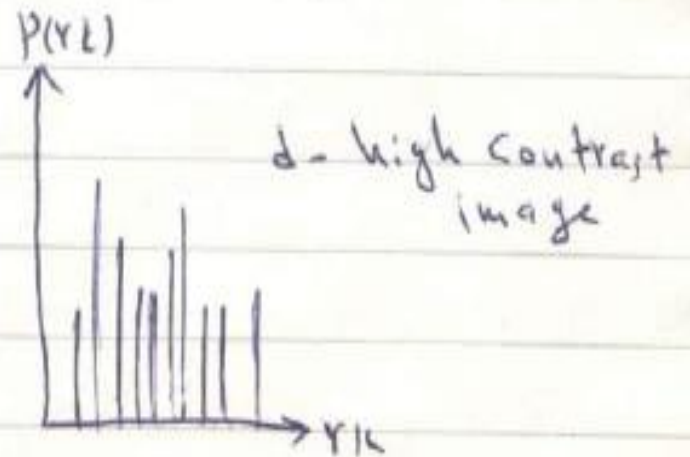 P(rk)
d- high contrast
image
rk